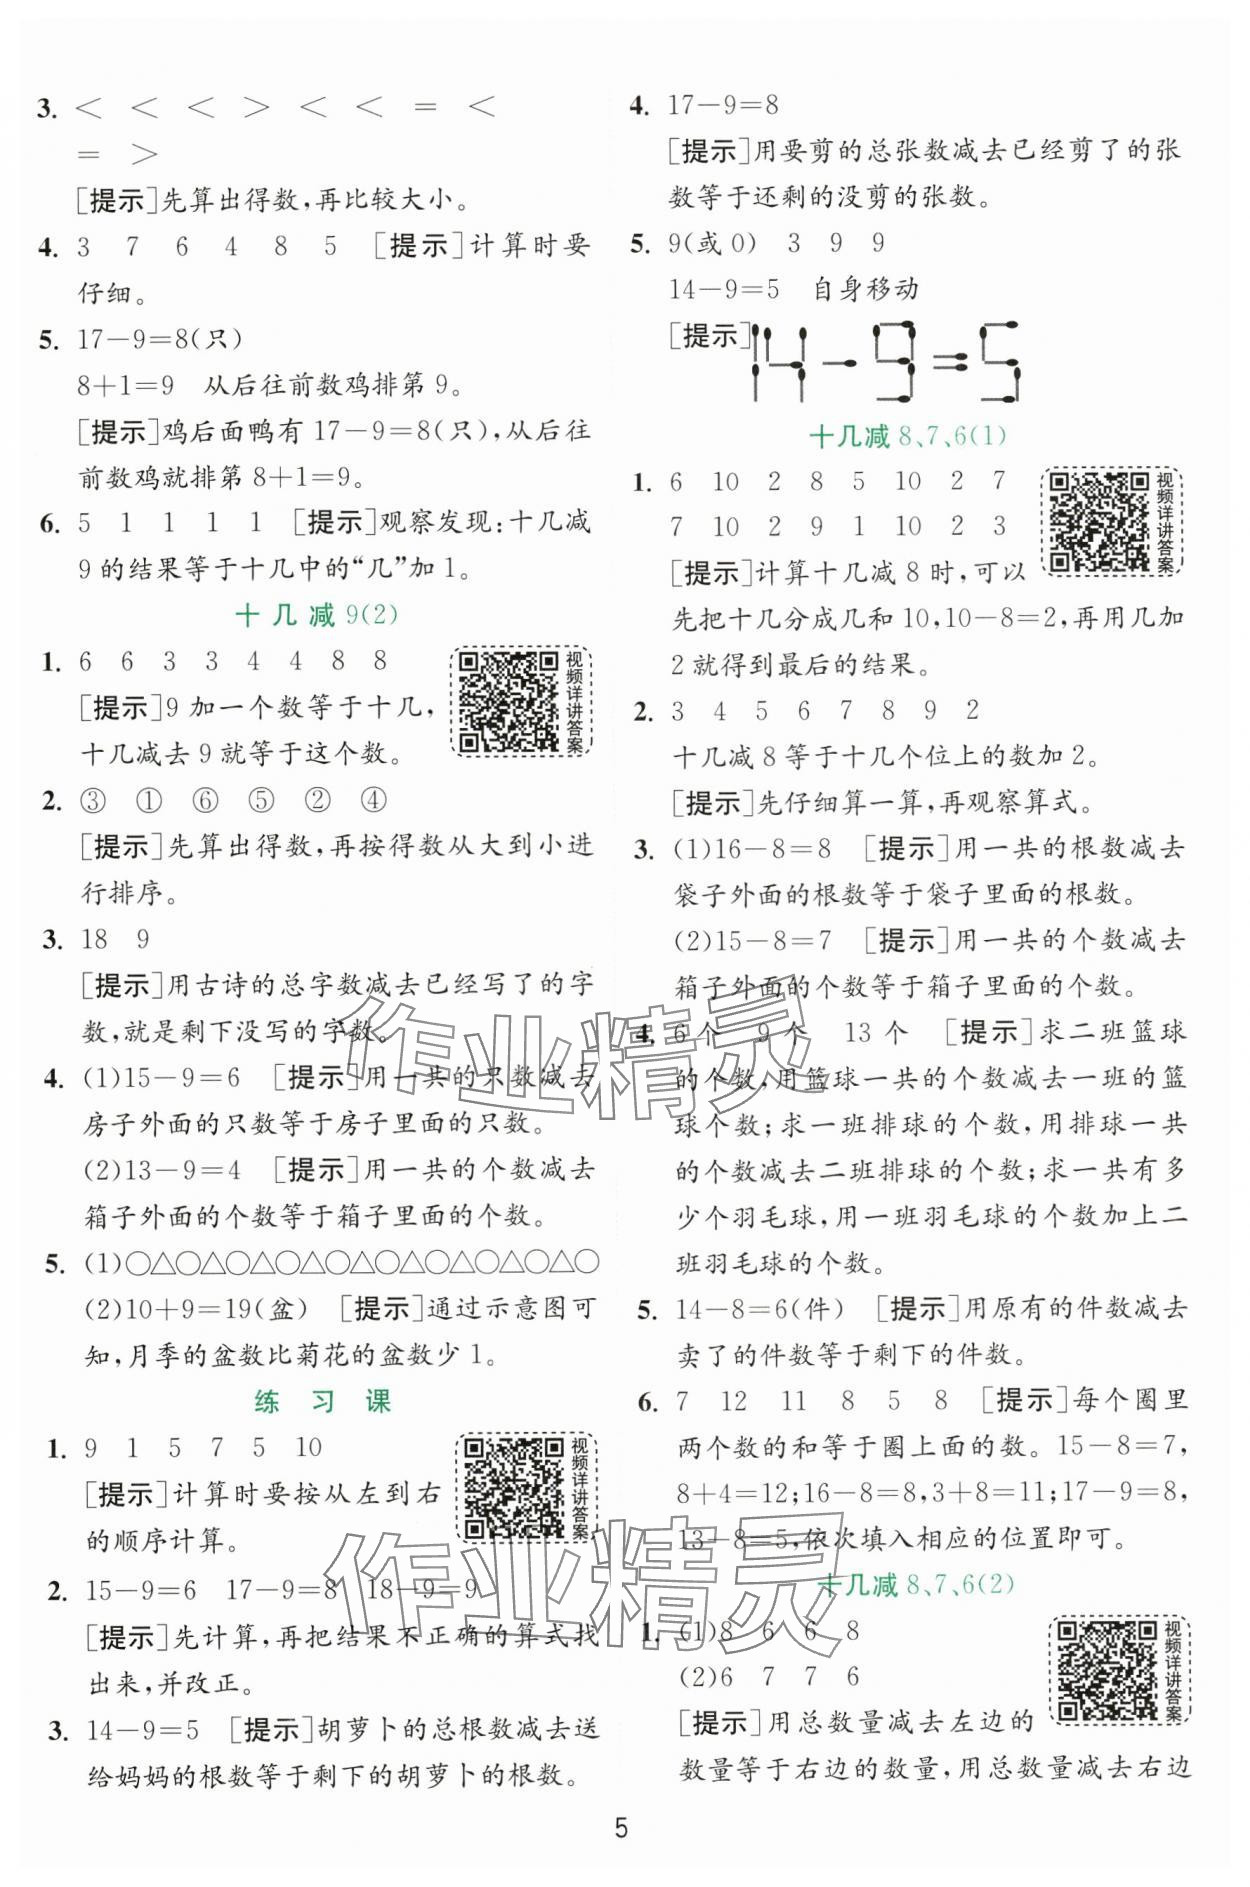 3. < < < > < < = <
= >
[提示]先算出得数,再比较大小。
4. 3 7 6 4 8 5 [提示]计算时要
仔细。
5. 17-9=8(只)
8+1=9 从后往前数鸡排第9。
[提示]鸡后面鸭有17-9=8(只),从后往
前数鸡就排第8+1=9。
6. 5 1 1 1 1 [提示]观察发现:十几减
9的结果等于十几中的“几”加1。
十几减9(2)
1. 6 6 3 3 4 4 8 8
[提示]9加一个数等于十几,
十几减去9就等于这个数。
视频详讲答案
2. ③ ① ⑥ ⑤ ② ④
[提示]先算出得数,再按得数从大到小进
行排序。
3. 18 9
[提示]用古诗的总字数减去已经写了的字
数,就是剩下没写的字数。
4. (1)15-9=6 [提示]用一共的只数减去
房子外面的只数等于房子里面的只数。
(2)13-9=4 [提示]用一共的个数减去
箱子外面的个数等于箱子里面的个数。
5. (1)○△○△○△○△○△○△○△○△○△○
(2)10+9=19(盆) [提示]通过示意图可
知,月季的盆数比菊花的盆数少1。
练习课
1. 9 1 5 7 5 10
[提示]计算时要按从左到右
的顺序计算。
视频详讲答案
2. 15-9=6 17-9=8 18-9=9
[提示]先计算,再把结果不正确的算式找
出来,并改正。
3. 14-9=5 [提示]胡萝卜的总根数减去送
给妈妈的根数等于剩下的胡萝卜的根数。
4. 17-9=8
[提示]用要剪的总张数减去已经剪了的张
数等于还剩的没剪的张数。
5. 9(或0) 3 9 9
14-9=5 自身移动
[提示]14-9=5
十几减8、7、6(1)
1. 6 10 2 8 5 10 2 7
7 10 2 9 1 10 2 3
[提示]计算十几减8时,可以
先把十几分成几和10,10-8=2,再用几加
2就得到最后的结果。
视频详讲答案
2. 3 4 5 6 7 8 9 2
十几减8等于十几个位上的数加2。
[提示]先仔细算一算,再观察算式。
3. (1)16-8=8 [提示]用一共的根数减去
袋子外面的根数等于袋子里面的根数。
(2)15-8=7 [提示]用一共的个数减去
箱子外面的个数等于箱子里面的个数。
4. 6个 9个 13个 [提示]求二班篮球
的个数,用篮球一共的个数减去一班的篮
球个数;求一班排球的个数,用排球一共
的个数减去二班排球的个数;求一共有多
少个羽毛球,用一班羽毛球的个数加上二
班羽毛球的个数。
5. 14-8=6(件) [提示]用原有的件数减去
卖了的件数等于剩下的件数。
6. 7 12 11 8 5 8 [提示]每个圈里
两个数的和等于圈上面的数。15-8=7,
8+4=12;16-8=8,3+8=11;17-9=8,
13-8=5,依次填入相应的位置即可。
十几减8、7、6(2)
1. (1)8 6 6 8
(2)6 7 7 6
[提示]用总数量减去左边的
数量等于右边的数量,用总数量减去右边
视频详讲答案
作业精灵
作业精灵
5